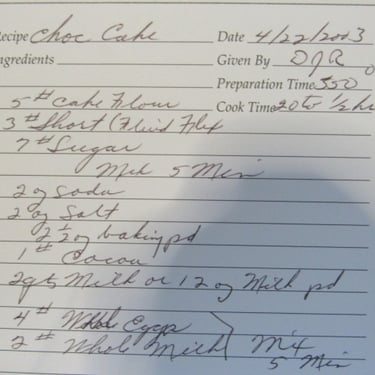 Recipe Choc Cake Date 4/22/2003
Ingredients Given By DJA
Preparation Time 350
5 # Cake Flour Cook Time 20 to 1/2 hr
3 # Short (Fluid Flex
7 # Sugar
Mix 5 Min
2 oz Soda
2 oz Salt
2 1/2 oz baking pd
1 # Cocoa
2 qts Milk or 12 oz Milk pd
4 # Whole Eggs
2 # Whole Milk Mix
5 Min